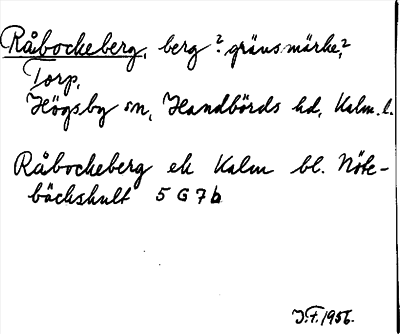 Råbockeberg, berg? gränsmärke?,
Torp,
Högsby sn, Handbörds hd, Kalm. l.
Råbockeberg ek Kalm bl. Nöte-
bäckshult 5 G 7 b
J.F. 1956.